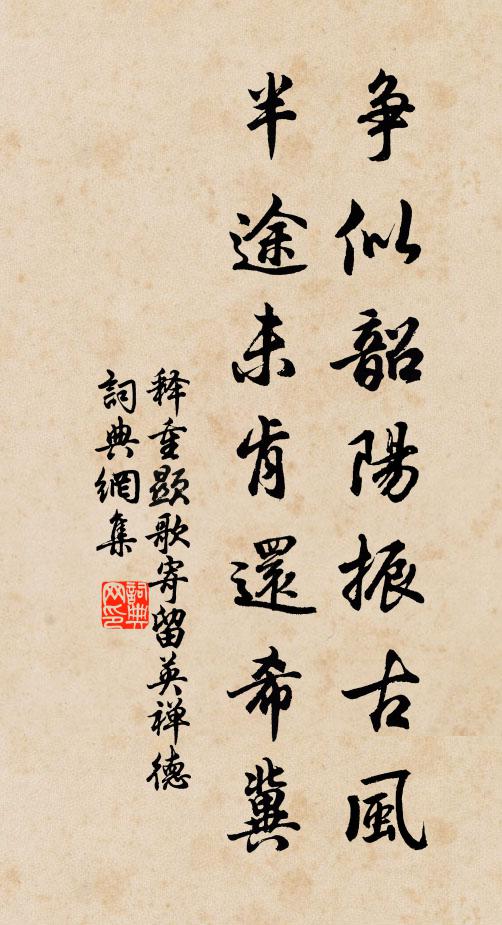 争似韶陽振古風
半途未肯還希冀
释重顯歌寄留英禅德
詞典網集
詞典
网印